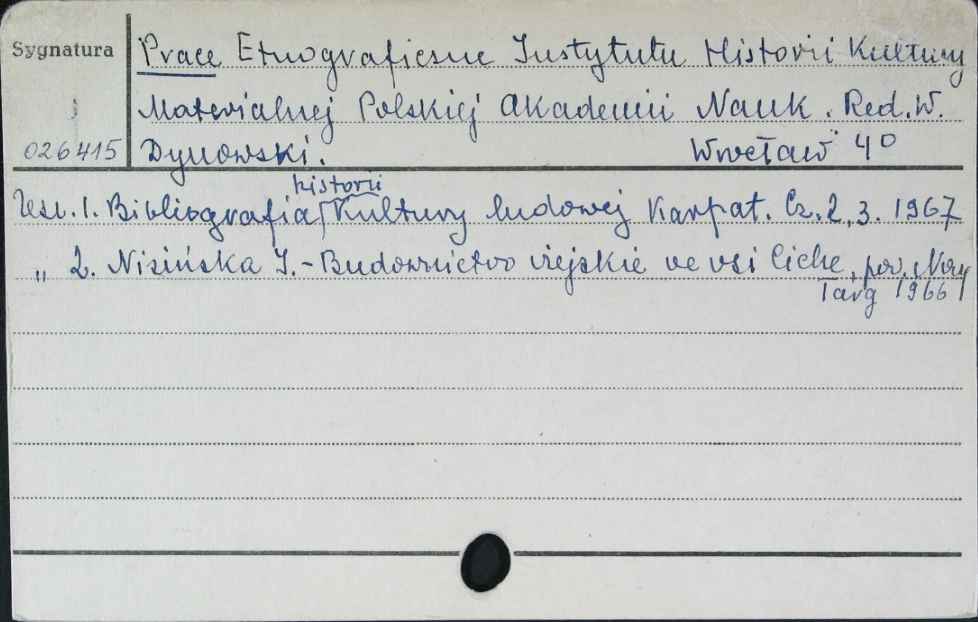 Sygnatura
Prace Etnograficzne Instytutu Historii Kultury
Materialnej Polskiej Akademii Nauk. Red. W.
026415 Dynowski. Wrocław 4°
historii
Zesz. 1. Bibliografia Kultury ludowej Karpat. Cz. 2, 3. 1967
„ 2. Nizińska I. - Budownictwo wiejskie we wsi Ciche, pow. Nowy
Targ 1966